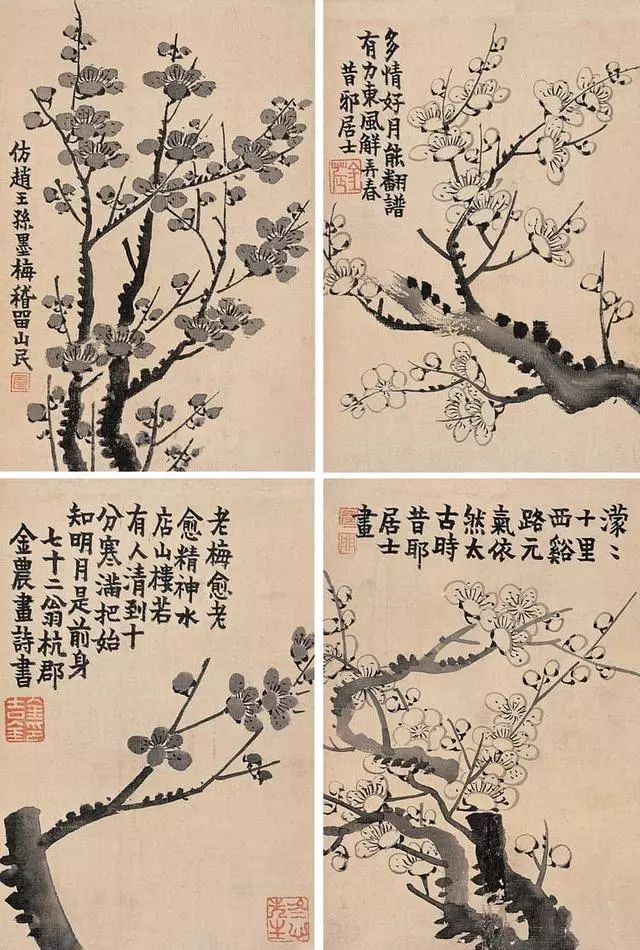 仿趙王孫墨梅稽留山民
多情好月能翻譜
有力東風解弄春
昔邪居士
老梅愈老
愈精神水
店山樓若
有人清到十
分寒滿把始
知明月是前身
七十二翁杭郡
金農畫詩書
冬心先生
濛〻
十里
西谿
路元
氣依
然太
古時
昔耶
居士
畫